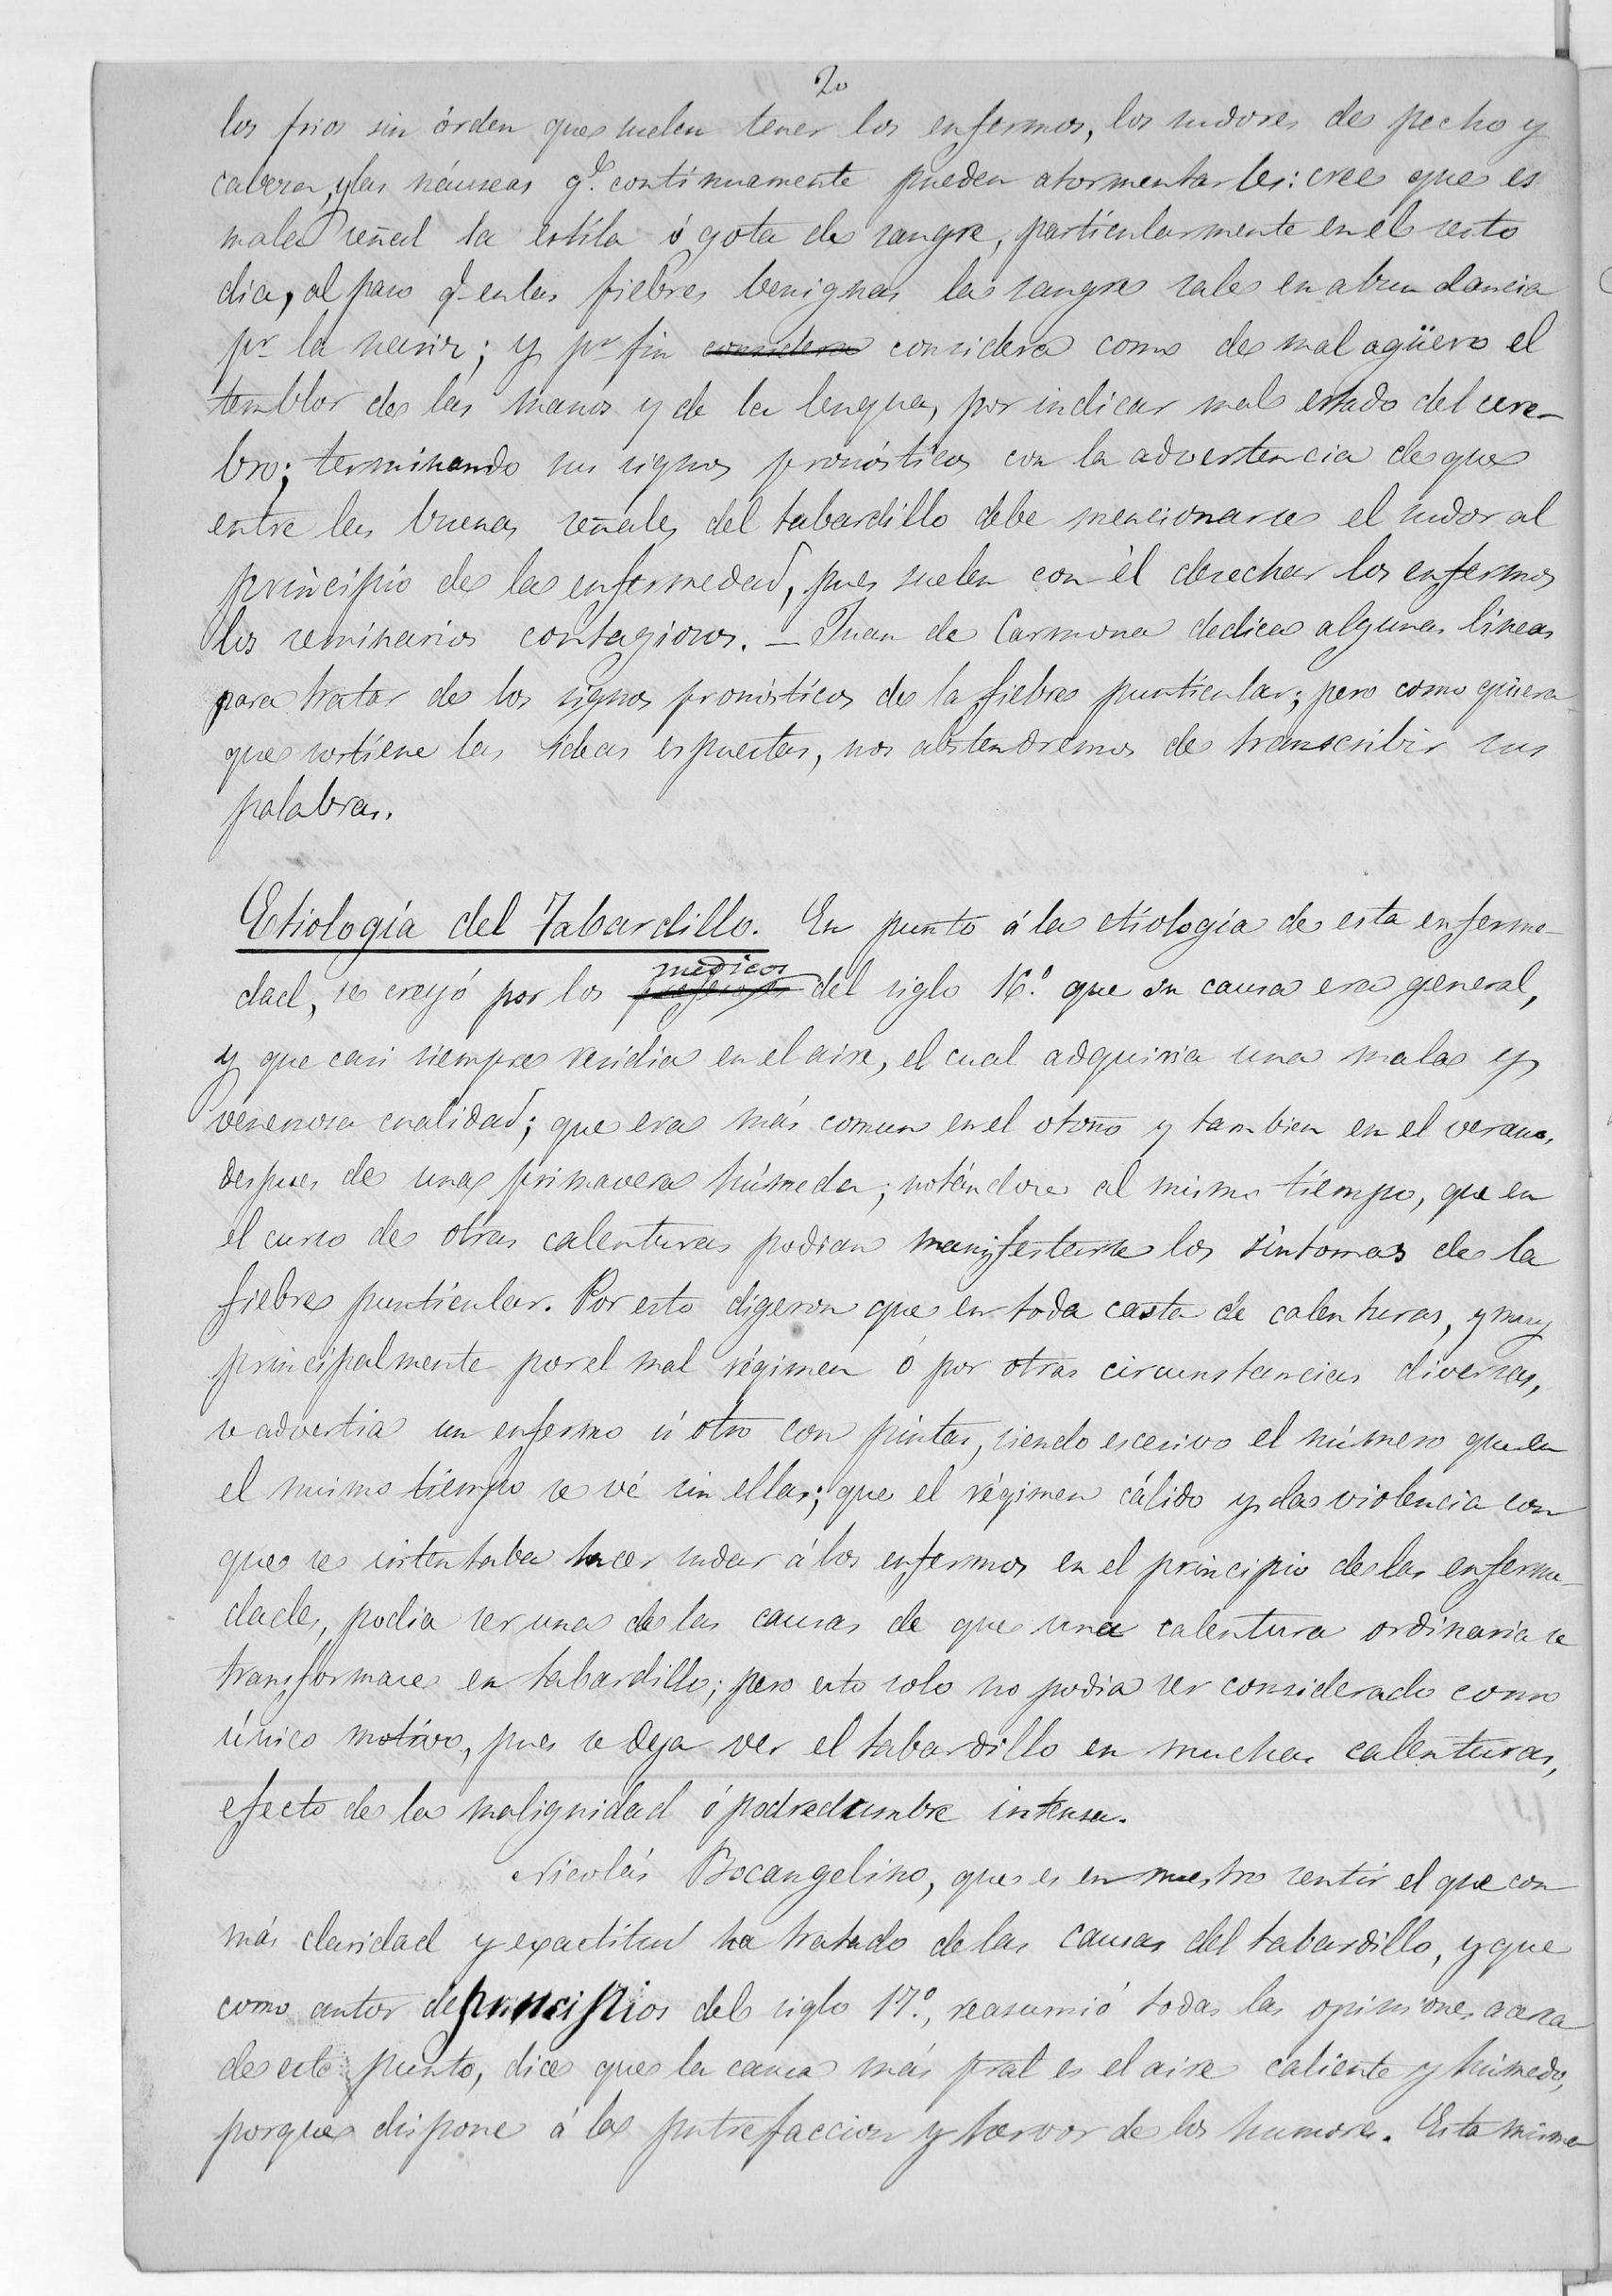 20
los frios sin órden que suelen tener los enfermos, los sudores de pecho y
cabeza, y las náuseas q.e continuamente pueden atormentarles: cree que es
mala señal la estila ó gota de sangre, particularmente en el sesto
dia, al paso q.e en las fiebres benignas la sangre sale en abundancia
pr la nariz; y pr fin considera considera como de mal agüero el
temblor de las manos y de la lengua, por indicar mal estado del cere-
bro; terminando sus signos pronósticos con la advertencia de que
entre las buenas señales del tabardillo debe mencionarse el sudor al
principio de la enfermedad, pues suelen con él desechar los enfermos
los seminarios contagiosos. — Juan de Carmona dedica algunas lineas
para tratar de los signos pronósticos de la fiebre punticular; pero como quiera
que sostiene las ideas espuestas, nos abstendremos de transcribir sus
palabras.
Etiología del Tabardillo. En punto á la etiología de esta enferme-
dad, se creyó por los médicos del siglo 16.º que su causa era general,
y que casi siempre residia en el aire, el cual adquiria una mala y
venenosa cualidad; que era más comun en el otoño y tambien en el verano,
despues de una primavera húmeda; notándose al mismo tiempo, que en
el curso de otras calenturas podian manifestarse los síntomas de la
fiebre punticular. Por esto digeron que en toda casta de calenturas, y muy
principalmente por el mal régimen ó por otras circunstancias diversas,
se advertia un enfermo ú otro con pintas, siendo escesivo el número que en
el mismo tiempo se vé sin ellas; que el régimen cálido y la violencia con
que se intentaba hacer sudar á los enfermos en el principio de las enferme-
dades, podia ser una de las causas de que una calentura ordinaria se
transformase en tabardillo; pero esto solo no podia ser considerado como
único motivo, pues se deja ver el tabardillo en muchas calenturas,
efecto de la malignidad ó podredumbre intensa.
Nicolás Bocangelino, que es en nuestro sentir el que con
más claridad y exactitud ha tratado de las causas del tabardillo, y que
como autor de principios del siglo 17.º, reasumió todas las opiniones acerca
de este punto, dice que la causa más pral es el aire caliente y húmedo,
porque dispone á la putrefaccion y hervor de los humores. Esta misma